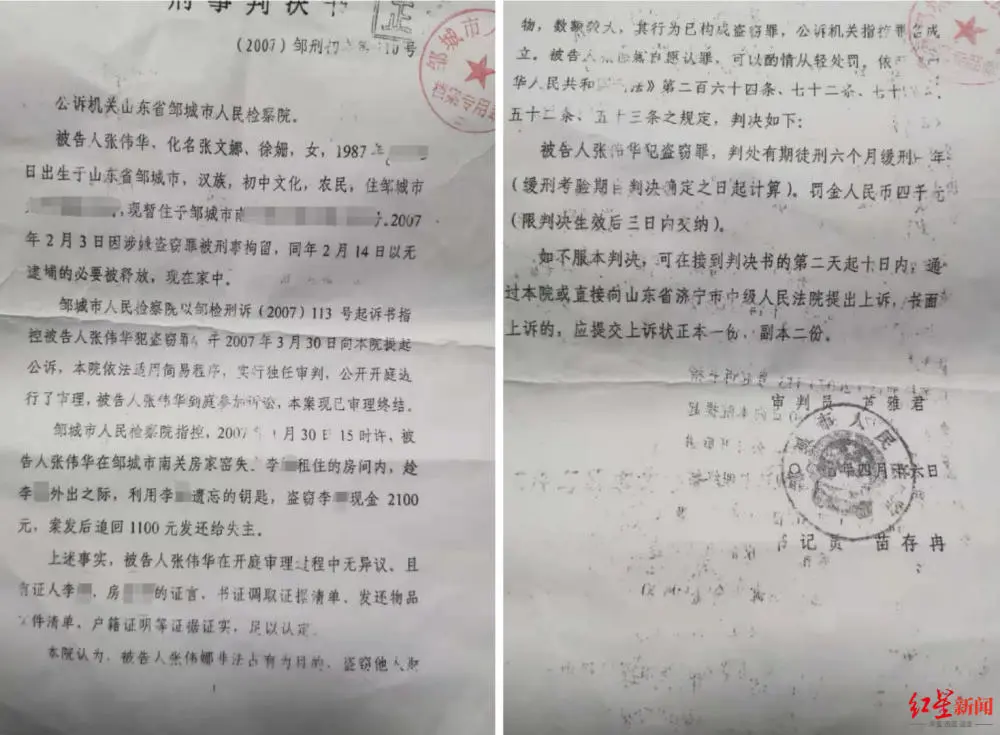 刑事判决书
正
(2007)邹刑初 第 10号
邹城市人
档案专用章
公诉机关山东省邹城市人民检察院。
被告人张伟华，化名张文娜、徐姗，女，1987年
日出生于山东省邹城市，汉族，初中文化，农民，住邹城市
,现暂住于邹城市南 .2007
年2月3日因涉嫌盗窃罪被刑事拘留，同年2月14日以无
逮捕的必要被释放，现在家中。
邹城市人民检察院以邹检刑诉(2007)113号起诉书指
控被告人张伟华犯盗窃罪，于2007年3月30日向本院提起
公诉，本院依法适用简易程序，实行独任审判，公开开庭进
行了审理，被告人张伟华到庭参加诉讼，本案现已审理终结。
邹城市人民检察院指控，2007年1月30日15时许，被
告人张伟华在邹城市南关房家窑失主李 租住的房间内，趁
李 外出之际，利用李 遗忘的钥匙，盗窃李 现金2100
元，案发后追回1100元发还给失主。
上述事实，被告人张伟华在开庭审理过程中无异议，且
有证人李 ，房 的证言，书证调取证据清单、发还物品
文件清单、户籍证明等证据证实，足以认定。
本院认为，被告人张伟娜非法占有为目的，盗窃他人财
1
物，数额较大，其行为已构成盗窃罪，公诉机关指控罪名成
立。被告人张 自愿认罪，可以酌情从轻处罚，依
华人民共和国 法》第二百六十四条、七十二条、七十 、
五十二条、五十三条之规定，判决如下：
被告人张伟华犯盗窃罪，判处有期徒刑六个月缓刑一年
(缓刑考验期自判决确定之日起计算)。罚金人民币四千元
(限判决生效后三日内交纳)。
如不服本判决，可在接到判决书的第二天起十日内，通
过本院或直接向山东省济宁市中级人民法院提出上诉，书面
上诉的，应提交上诉状正本一份，副本二份。
审判员 芦雅君
市人民
年四月 六日
书记员 苗存冉
红星新闻